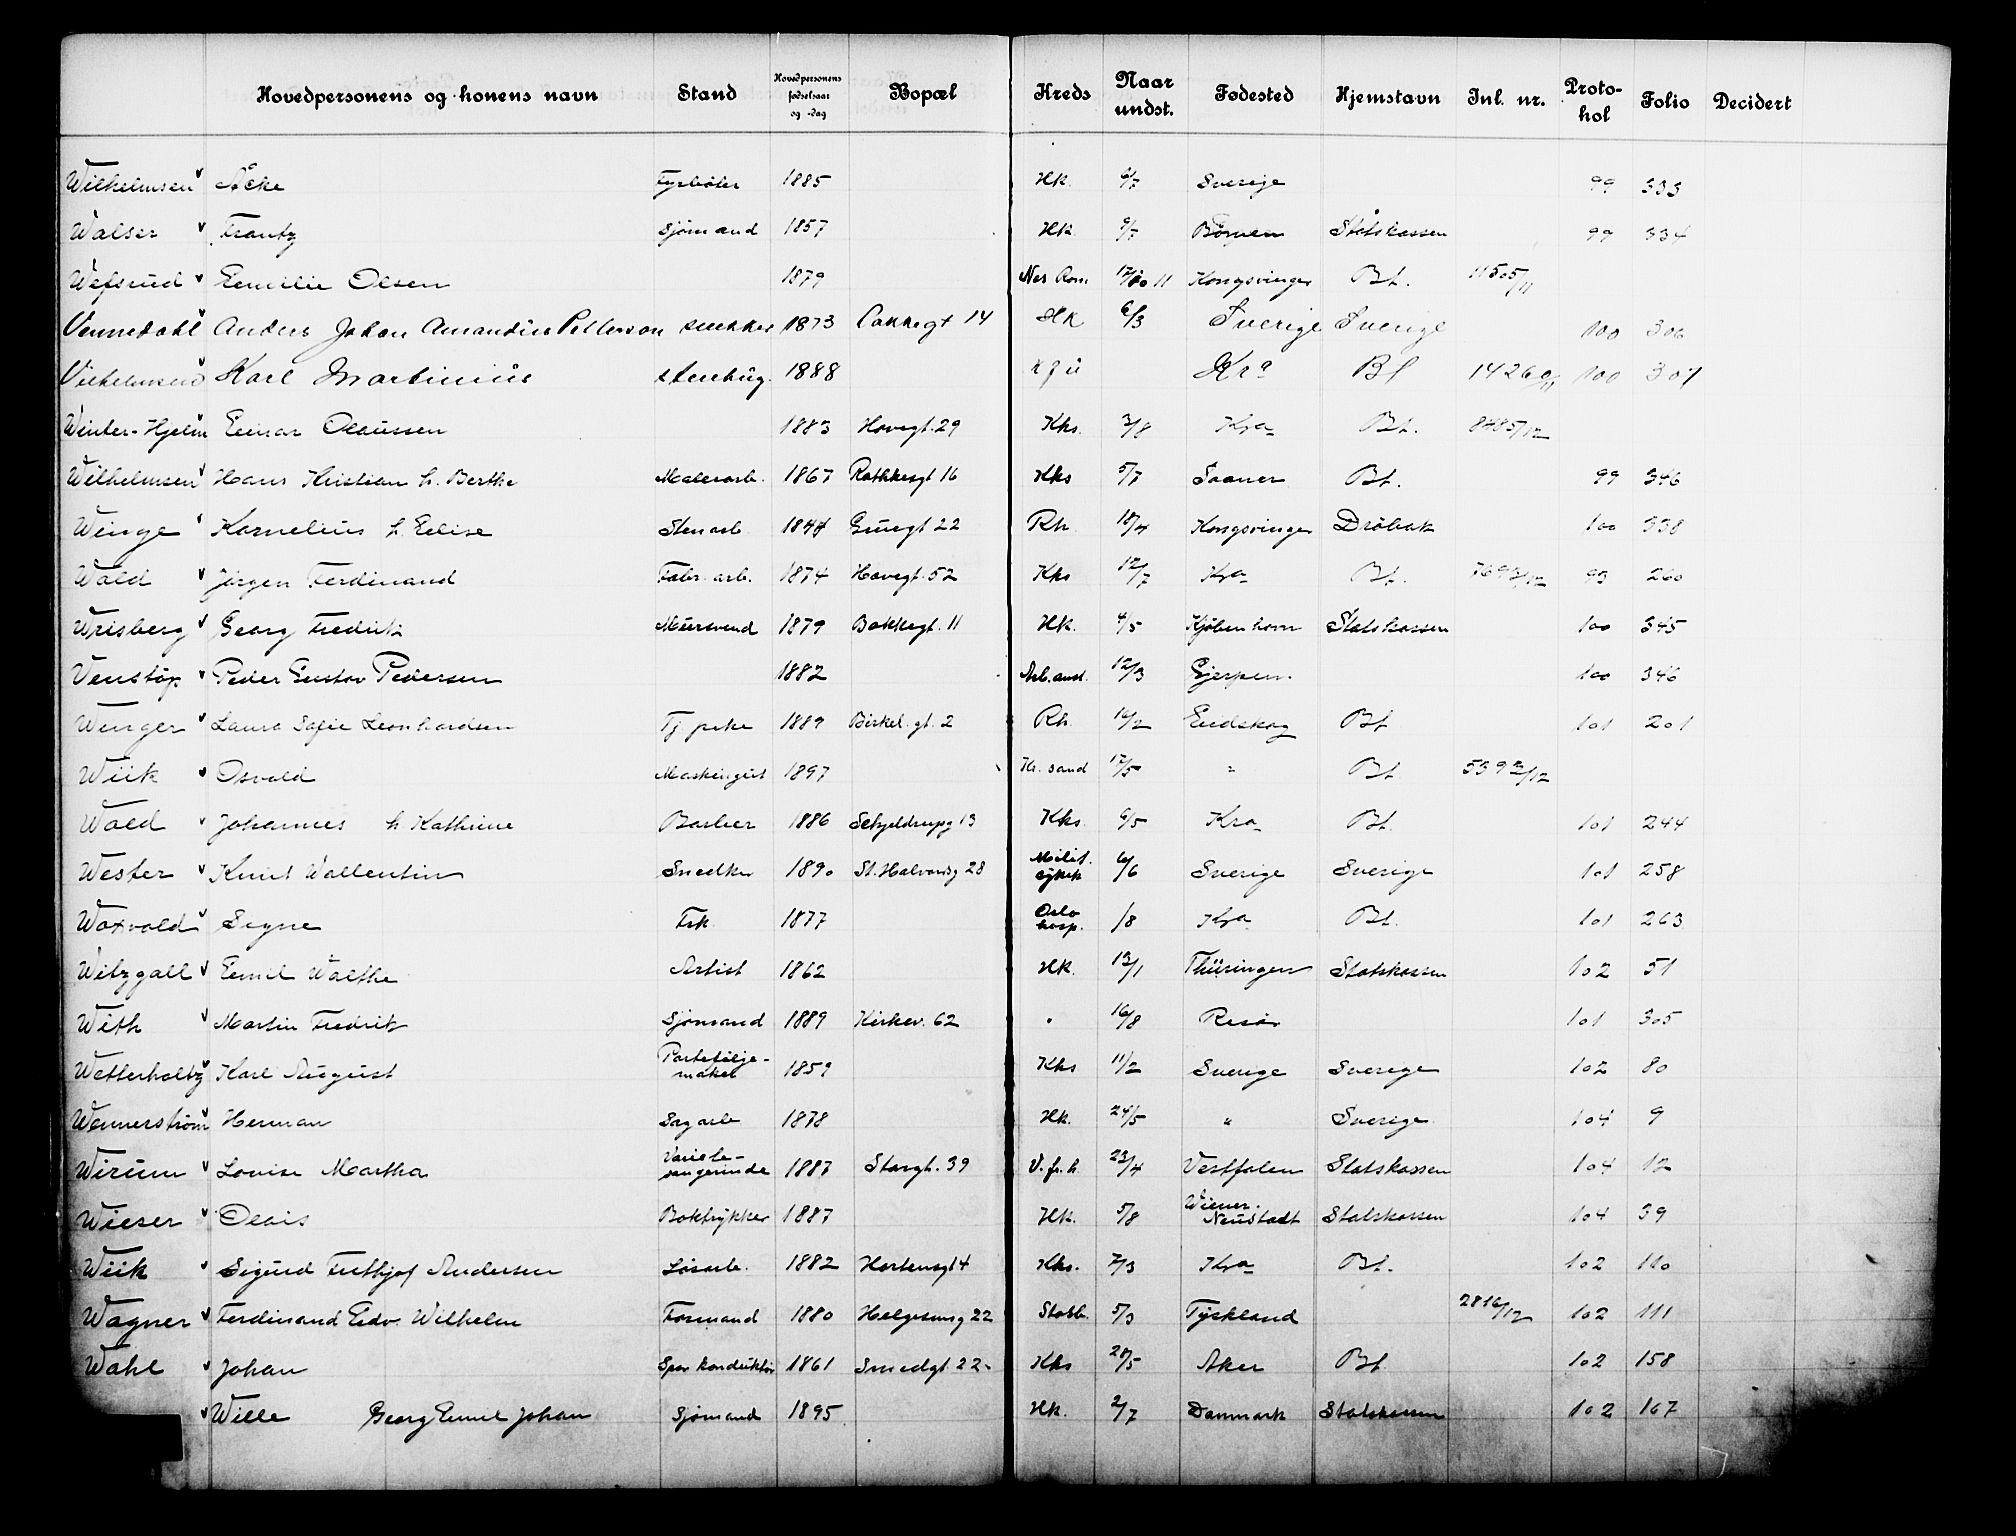 Hovedpersonens og konens navn Stand Hovedpersonens fødselsaar og -dag Bopæl Kreds Naar undst. Fødested Hjemstavn Inl. nr. Protokol Folio Decidert
Wilhelmsen Åcke Fyrbøter 1885 Hk. 6/7 Sverige 99 333
Walser Frantz Sjømand 1857 Hk. 9/7 Statskassen 99 334
Wefsrud Emilie Olsen 1879 Nes Rom. 17/10 11 Kongsvinger Bt. 11505/11
Vennedahl Anders Johan Amandus Petterson snekker 1873 Bakkegt 14 Hk 6/3 Sverige Sverige 100 306
Vilhelmsen Karl Martinius stenhug. 1888 Kra Bt 14260/11 100 307
Winter-Hjelm Einar Olaussen 1883 Hovegt. 29 Kks. 3/8 Kra Bt. 8485/12
Wilhelmsen Hans Kristian h. Berthe Malerarb. 1867 Rathkesgt 16 Kks 5/7 Saaner Bt. 99 346
Winge Kornelius h. Elise Stenarb. 1844 Gruegt 22 Rh. 18/4 Kongsvinger Drøbak 100 338
Wold Jørgen Ferdinand Fabr. arb. 1874 Hovegt. 52 Kks 12/7 Kra Bt. 7692/12 93 260
Wrisberg Georg Fredrik Mursvend 1879 Bakkegt. 11 Hk. 4/5 Kjøbenhavn Statskassen 100 345
Venstøp Peder Gustav Pedersen 1882 Arb.anst. 12/3 Gjerpen. 100 346
Wenger Laura Sofie Leonhardsen Tj. pike 1889 Birkel. gt. 2 Rh. 16/2 Eidskog Bt. 101 201
Wiik Osvald Maskingut 1897 Kr. sand 17/5 " Bt. 5392/12
Wold Johannes h. Kathrine Barber 1886 Schjeldrupsg 13 Kks. 9/5 Kra Bt. 101 244
Wester Knut Wallentin Snedker 1890 St. Halvardsg 28 Milit. sykeh 6/6 Sverige Sverige 101 258
Woxvold Signe Frk. 1877 Oslo hosp. /8 Kra Bt. 101 263
Witzgall Emil Walthe Artist 1862 Hk. 13/1 Thüringen Statskassen 102 51
With Martin Fredrik Sjømand 1889 Kirkev. 62 " 16/8 Risør 101 305
Wetterholtz Karl August Portefølje-maker 1859 Kks 11/2 Sverige Sverige 102 80
Wennerstrøm Herman Sagarb 1878 Hk. 24/5 " Sverige 104 9
Wirum Lovise Martha Variete-sangerinde 1887 Storgt. 39 V. fr. h. 23/4 Vestfalen Statskassen 104 12
Wieser Alois Boktrykker 1887 Hk. 5/8 Wiener-Neustadt Statskassen 104 39
Wiik Sigurd Frithjof Andersen Løsarb. 1882 Hortensgt 4 Kks. 7/3 Kra Bt. 102 110
Wagner Ferdinand Edv. Wilhelm Formand 1880 Helgesensg 22 Stabb. 5/3 Tyskland 2816/12 102 111
Wahl Johan Spor konduktør 1861 Smedgt. 22 Kks 28/5 Aker Bt. 102 158
Wille Georg Emil Johan Sjømand 1895 Hk. 2/7 Danmark Statskassen 102 167